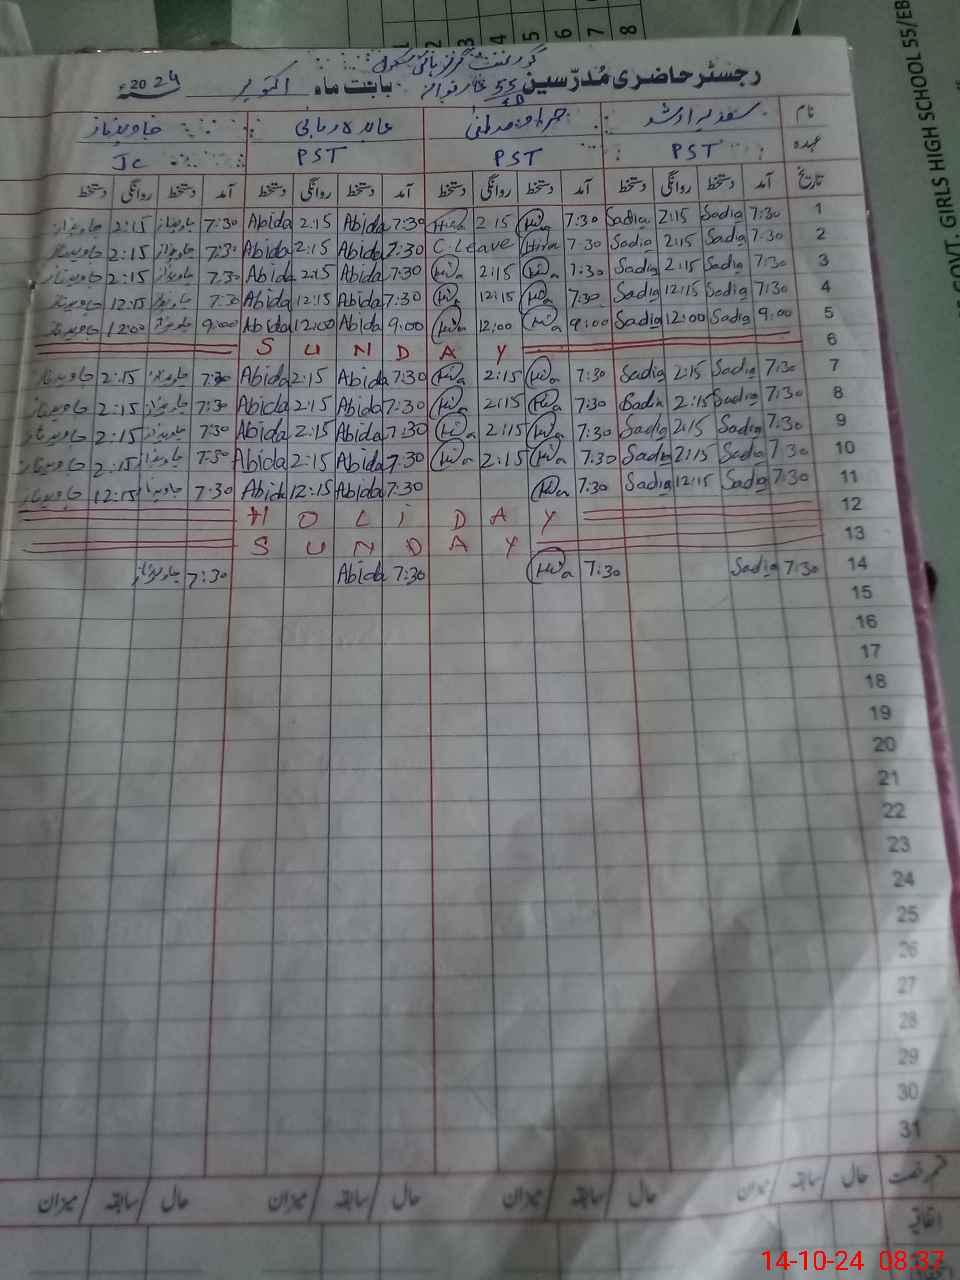 1 2 3 4 5 6 7 8
GOVT. GIRLS HIGH SCHOOL 55/EB
گورنمنٹ گرلز ہائی سکول
رجسٹر حاضری مُدرّسین 55 بابت ماہ اکتوبر 2024ء
نام سعدیہ ارشد عابدہ بی بی جاوید نیاز
عہدہ PST PST PST JC
تاریخ آمد دستخط روانگی دستخط آمد دستخط روانگی دستخط آمد دستخط روانگی دستخط آمد دستخط روانگی دستخط
1 7:30 Sadia 2:15 Sadia 7:30 Hira 2:15 Hira 7:30 Abida 2:15 Abida 7:30 2:15
2 7:30 Sadia 2:15 Sadia 7:30 Hira C.Leave 7:30 Abida 2:15 Abida 7:30 2:15
3 7:30 Sadia 2:15 Sadia 7:30 Hira 2:15 Hira 7:30 Abida 2:15 Abida 7:30 2:15
4 7:30 Sadia 12:15 Sadia 7:30 Hira 12:15 Hira 7:30 Abida 12:15 Abida 7:30 12:15
5 9:00 Sadia 12:00 Sadia 9:00 Hira 12:00 Hira 9:00 Abida 12:00 Abida 9:00 12:00
6 SUNDAY
7 7:30 Sadia 2:15 Sadia 7:30 Hira 2:15 Hira 7:30 Abida 2:15 Abida 7:30 2:15
8 7:30 Sadia 2:15 Sadia 7:30 Hira 2:15 Hira 7:30 Abida 2:15 Abida 7:30 2:15
9 7:30 Sadia 2:15 Sadia 7:30 Hira 2:15 Hira 7:30 Abida 2:15 Abida 7:30 2:15
10 7:30 Sadia 2:15 Sadia 7:30 Hira 2:15 Hira 7:30 Abida 2:15 Abida 7:30 2:15
11 7:30 Sadia 12:15 Sadia 7:30 Hira 7:30 Abida 12:15 Abida 7:30 12:15
12 HOLIDAY
13 SUNDAY
14 7:30 Sadia 7:30 Hira 7:30 Abida 7:30
15
16
17
18
19
20
21
22
23
24
25
26
27
28
29
30
31
حال / سابقہ / میزان حال / سابقہ / میزان حال / سابقہ / میزان حال / سابقہ / میزان
اتفاقیہ
14-10-24 08:37